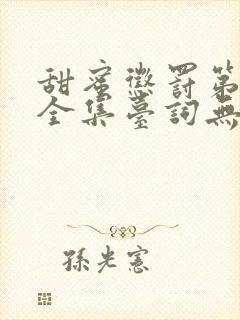 甜蜜懲罰第
全集臺詞無
孫光憲